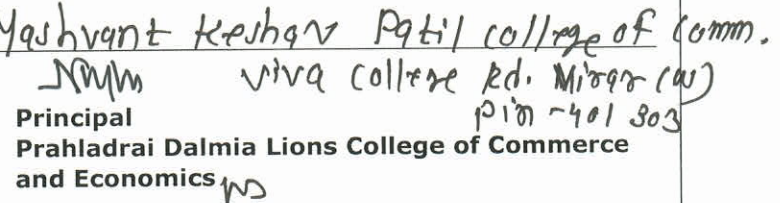 Yashvant Keshav Patil college of Comm.
Viva College Rd. Mirar (W)
Pin - 401 303
Principal
Prahladrai Dalmia Lions College of Commerce
and Economics